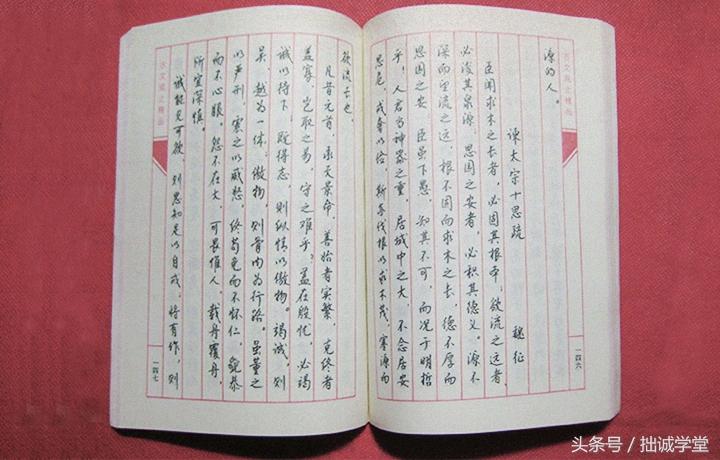 古文观止精品
源的人。
谏太宗十思疏
魏征
臣闻求木之长者，必固其根本，欲流之远者
必浚其泉源，思国之安者，必积其德义。源不
深而望流之远，根不固而求木之长，德不厚而
思国之安，臣虽下愚，知其不可，而况于明哲
乎，人君当神器之重，居域中之大，不念居安
思危，戒奢以俭，斯亦伐根以求木茂，塞源而
一四六
欲流长也。
凡昔元首，承天景命，善始者实繁，克终者
盖寡，岂取之易，守之难乎？盖在殷忧，必竭
诚以待下，既得志，则纵情以傲物。竭诚，则
吴、越为一体，傲物，则骨肉为行路。虽董之
以严刑，震之以威怒，终苟免而不怀仁，貌恭
而不心服。怨不在大，可畏惟人，载舟覆舟，
所宜深慎。
诚能见可欲，则思知足以自戒，将有作，则
古文观止精品
一四七
头条号／拙诚学堂